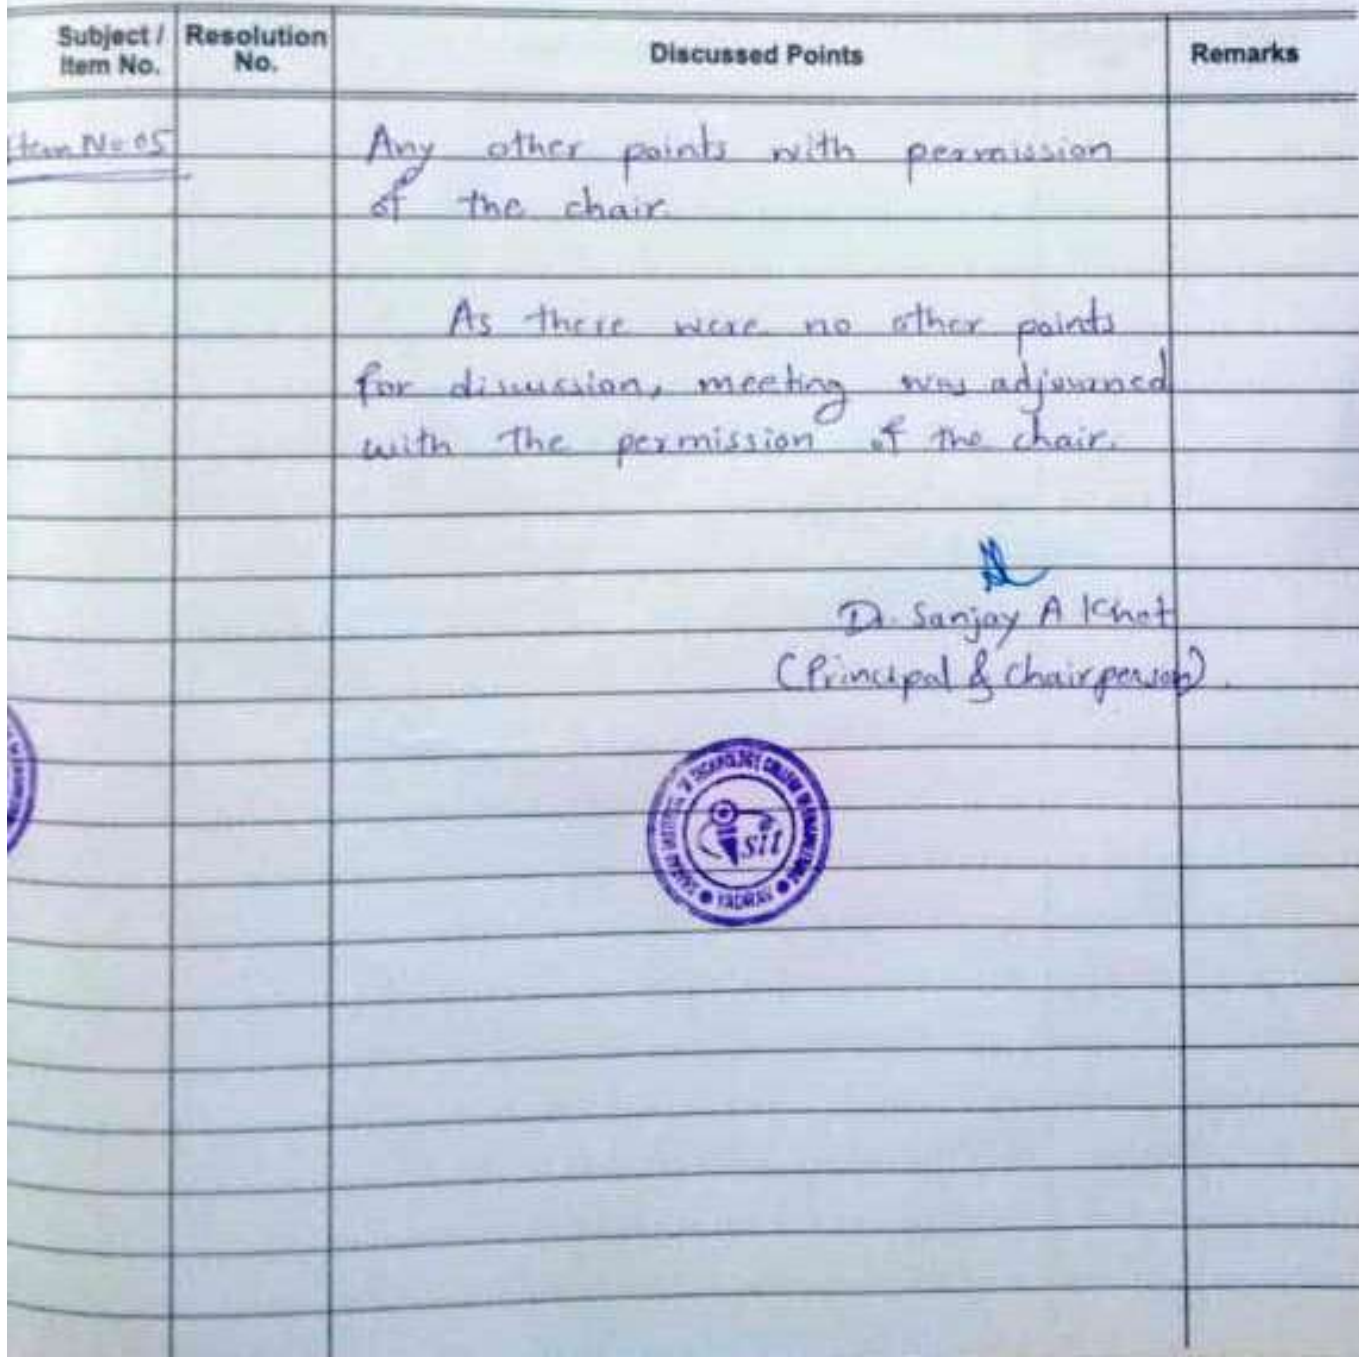 Subject / Item No.
Resolution No.
Discussed Points
Remarks
Item No 05
Any other points with permission
of the chair.
As there were no other points
for discussion, meeting was adjourned
with the permission of the chair.
Dr. Sanjay A Khot
(Principal & Chairperson).
INSTITUTE OF TECHNOLOGY COLLEGE
sit
YADRAV